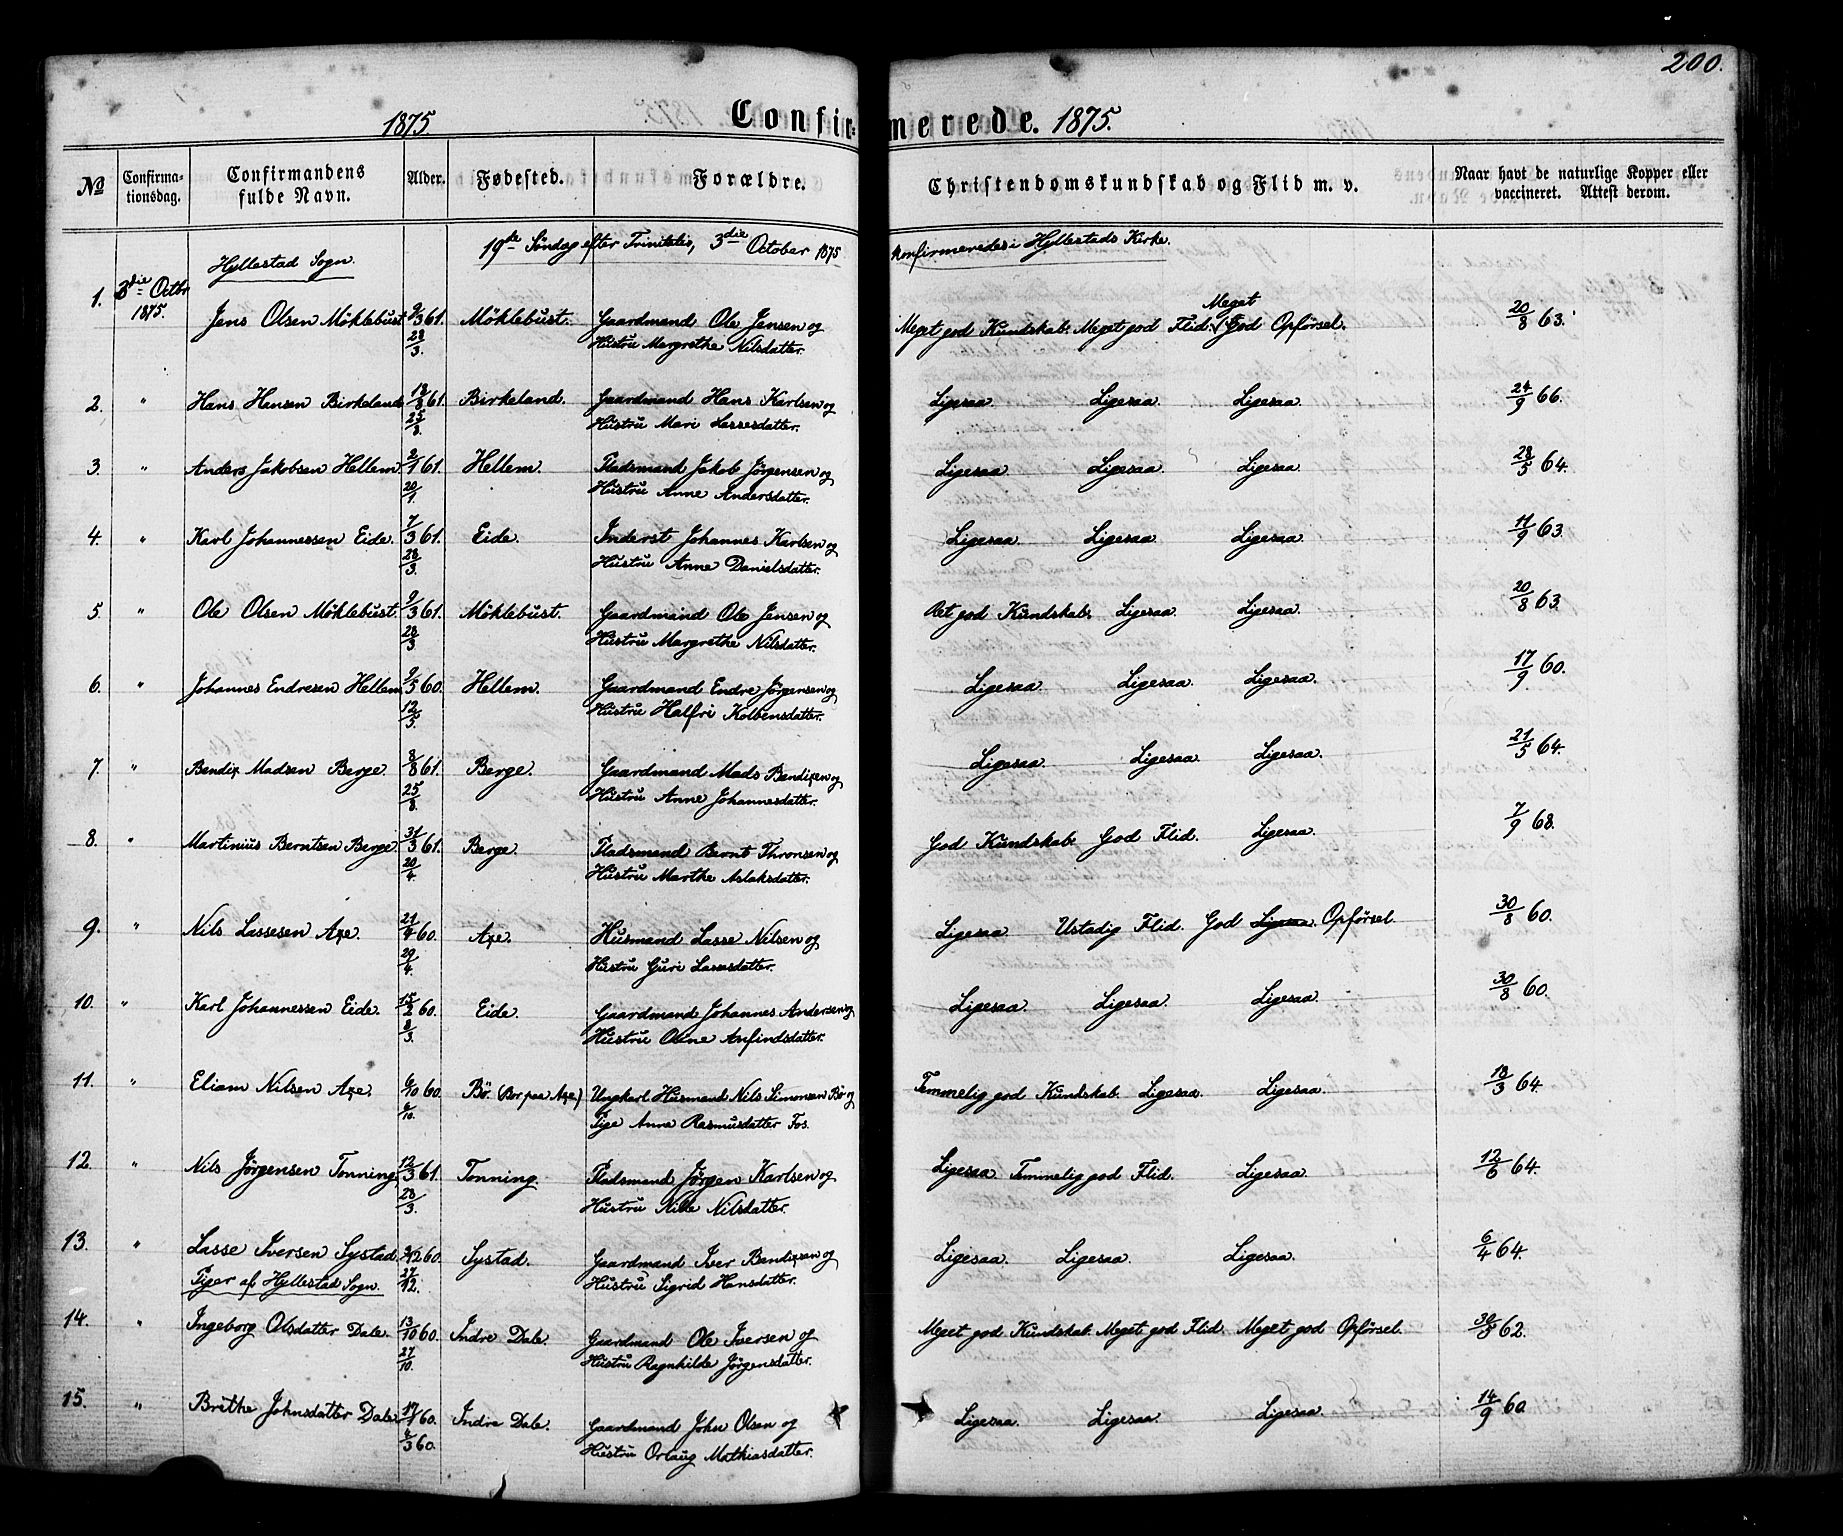 200.
1875 Confirmerede. 1875.
No Confirmationsdag. Confirmandens fulde Navn. Alder. Fødested. Forældre. Christendomskundskab og Flid m. v. Naar havt de naturlige Kopper eller vaccineret. Attest derom.
19de Søndag efter Trinitatis, 3die October 1875 konfirmeredes i Hyllestads Kirke.
Hyllestad Sogn.
1. 3die Octbr 1875. Jens Olsen Möklebust 9/3 61. Möklebust. Gaardmand Ole Jensen og Meget god Kundskab. Meget god Flid. Meget God Opførsel. 20/8 63.
28/3. Hustru Margrethe Nilsdatter.
2. " Hans Hansen Birkeland 61. Birkeland. Gaardmand Hans Karlsen og Ligesaa. Ligesaa. Ligesaa. 24/9 66.
25/8. Hustru Mari Lassesdatter.
3. " Anders Jakobsen Hellem. 2/1 61. Hellem. Pladsmand Jakob Jørgensen og Ligesaa Ligesaa. Ligesaa. 28/5 64.
20/1. Hustru Anne Andersdatter.
4. " Karl Johannessen Eide. 7/3 61. Eide. Inderst Johannes Karlsen og Ligesaa Ligesaa Ligesaa. 11/9 63.
28/3. Hustru Anne Danielsdatter.
5. " Ole Olsen Möklebust. 9/3 61. Möklebust. Gaardmand Ole Jensen og Ret god Kundskab. Ligesaa. Ligesaa. 20/8 63.
28/3 Hustru Margrethe Nilsdatter.
6. " Johannes Endresen Hellem 9/5 60. Hellem. Gaardmand Endre Jørgensen og Ligesaa. Ligesaa. Ligesaa. 17/9 60.
12/5. Hustru Halfri Kolbensdatter.
7. " Bendix Madsen Berge. 8/8 61. Berge. Gaardmand Mads Bendixen og Ligesaa. Ligesaa. Ligesaa. 21/5 64.
25/8. Hustru Anne Johannesdatter.
8. " Martinius Berntsen Berge. 31/3 61. Berge. Pladsmand Bernt Thronsen og God Kundskab. God Flid. Ligesaa. 7/9 68.
20/4. Hustru Marthe Aslaksdatter.
9. " Nils Lassesen Axe. 21/4 60. Axe. Husmand Lasse Nilsen og Ligesaa. Ustadig Flid. God Ligesaa. Opførsel. 30/8 60.
29/4. Hustru Guri Lassesdatter.
10. " Karl Johannessen Eide. 15/2 60. Eide. Gaardmand Johannes Andersen og Ligesaa. Ligesaa. Ligesaa. 30/8 60.
8/3. Hustru Oline Anfindsdatter.
11. " Eliam Nilsen Axe. 6/10 60. Bö. (Bor paa Axe) Ungkarl Husmand Nils Simonsen Bö og Temmelig god Kundskab. Ligesaa. Ligesaa. 18/3 64.
Pige Anne Rasmusdatter Fos.
12 " Nils Jørgensen Tonning. 12/3 61. Tonning. Pladsmand Jørgen Karlsen og Ligesaa. Temmelig god Flid. Ligesaa. 12/6 64.
28/3. Hustru Nille Nilsdatter.
13. " Lasse Iversen Systad. 60. Systad. Gaardmand Iver Bendixen og Ligesaa. Ligesaa. Ligesaa. 6/4 64.
Piger af Hyllestad Sogn. 27/12. Hustru Sigrid Hansdatter.
14. " Ingeborg Olsdatter Dale. 13/10 60. Indre Dale. Gaardmand Ole Iversen og Meget god Kundskab. Meget god Flid. Meget god Opførsel. 30/8 62.
27/10. Hustru Ragnhilde Jørgensdatter.
15. " Brithe Johnsdatter Dale 60. Indre Dale. Gaardmand John Olsen og Ligesaa. Ligesaa. Ligesaa. 14/9 60
60. Hustru Orlaug Mathiasdatter.